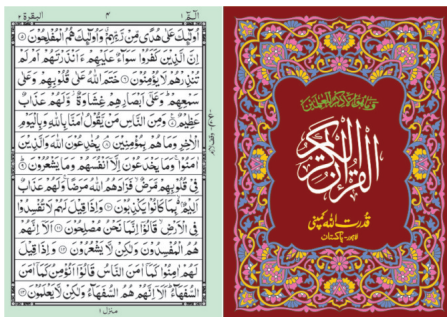 الٓمّٓ ١
٣
البقرة ٢
اُولٰٓئِكَ عَلٰى هُدًى مِّنْ رَّبِّهِمْ وَاُولٰٓئِكَ هُمُ الْمُفْلِحُوْنَ ۵
اِنَّ الَّذِيْنَ كَفَرُوْا سَوَآءٌ عَلَيْهِمْ ءَاَنْذَرْتَهُمْ اَمْ لَمْ
تُنْذِرْهُمْ لَا يُؤْمِنُوْنَ ۶ خَتَمَ اللّٰهُ عَلٰى قُلُوْبِهِمْ وَعَلٰى
سَمْعِهِمْ ؕ وَعَلٰٓى اَبْصَارِهِمْ غِشَاوَةٌ ؗ وَّلَهُمْ عَذَابٌ
عَظِيْمٌ ۷ وَمِنَ النَّاسِ مَنْ يَّقُوْلُ اٰمَنَّا بِاللّٰهِ وَبِالْيَوْمِ
الْاٰخِرِ وَمَا هُمْ بِمُؤْمِنِيْنَ ۸ يُخٰدِعُوْنَ اللّٰهَ وَالَّذِيْنَ
اٰمَنُوْا ۚ وَمَا يَخْدَعُوْنَ اِلَّآ اَنْفُسَهُمْ وَمَا يَشْعُرُوْنَ ۹
فِىْ قُلُوْبِهِمْ مَّرَضٌ ۙ فَزَادَهُمُ اللّٰهُ مَرَضًا ۚ وَلَهُمْ عَذَابٌ
اَلِيْمٌۢ ۙ بِمَا كَانُوْا يَكْذِبُوْنَ ۱۰ وَاِذَا قِيْلَ لَهُمْ لَا تُفْسِدُوْا
فِى الْاَرْضِ ۙ قَالُوْٓا اِنَّمَا نَحْنُ مُصْلِحُوْنَ ۱۱ اَلَآ اِنَّهُمْ
هُمُ الْمُفْسِدُوْنَ وَلٰكِنْ لَّا يَشْعُرُوْنَ ۱۲ وَاِذَا قِيْلَ
لَهُمْ اٰمِنُوْا كَمَآ اٰمَنَ النَّاسُ قَالُوْٓا اَنُؤْمِنُ كَمَآ اٰمَنَ
السُّفَهَآءُ ؕ اَلَآ اِنَّهُمْ هُمُ السُّفَهَآءُ وَلٰكِنْ لَّا يَعْلَمُوْنَ ۱۳
منزل ١
القرآن الكريم
قدرت اللہ کمپنی
لاہور - پاکستان